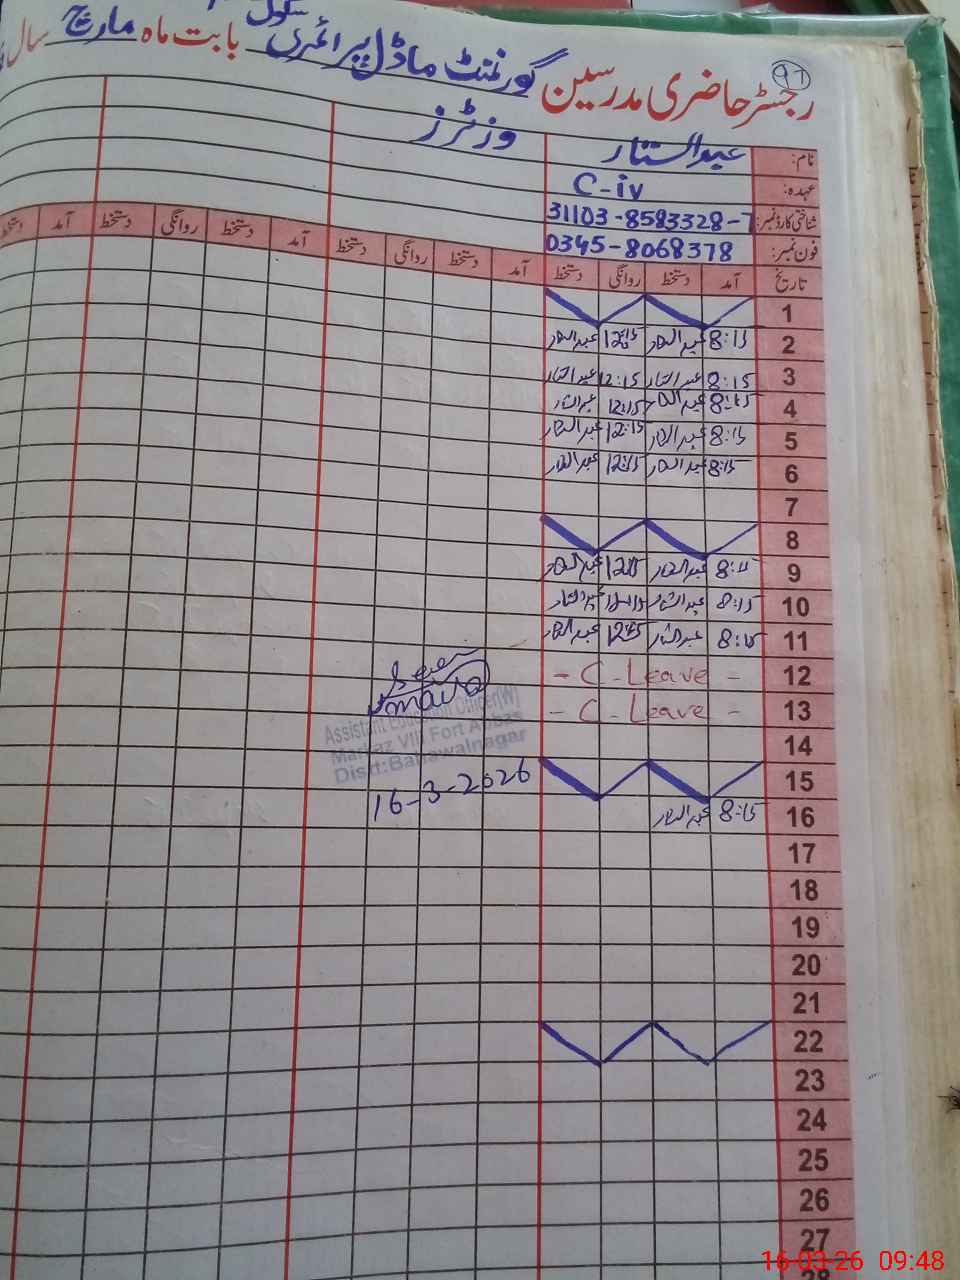 97
رجسٹر حاضری مدرسین گورنمنٹ ماڈل پرائمری سکول بابت ماہ مارچ سال
نام: عبدالستار وزٹرز
عہدہ: C-iv
شناختی کارڈ نمبر: 31103-8583328-7
فون نمبر: 0345-8068378
تاریخ آمد دستخط روانگی دستخط آمد دستخط روانگی دستخط آمد دستخط روانگی دستخط آمد دستخط
1
2 8:15 عبدالستار 12:15 عبدالستار
3 8:15 عبدالستار 12:15 عبدالستار
4 8:15 عبدالستار 12:15 عبدالستار
5 8:15 عبدالستار 12:15 عبدالستار
6 8:15 عبدالستار 12:15 عبدالستار
7
8
9 8:15 عبدالستار 12:15 عبدالستار
10 8:15 عبدالستار 12:15 عبدالستار
11 8:15 عبدالستار 12:15 عبدالستار
12 - C - Leave -
13 - C - Leave -
Seen
Assistant Education Officer[W]
Markaz VIII Fort Abbas
Distt:Bahawalnagar
16-3-2026
14
15
16 8:15 عبدالستار
17
18
19
20
21
22
23
24
25
26
27
28
16-03-26 09:48